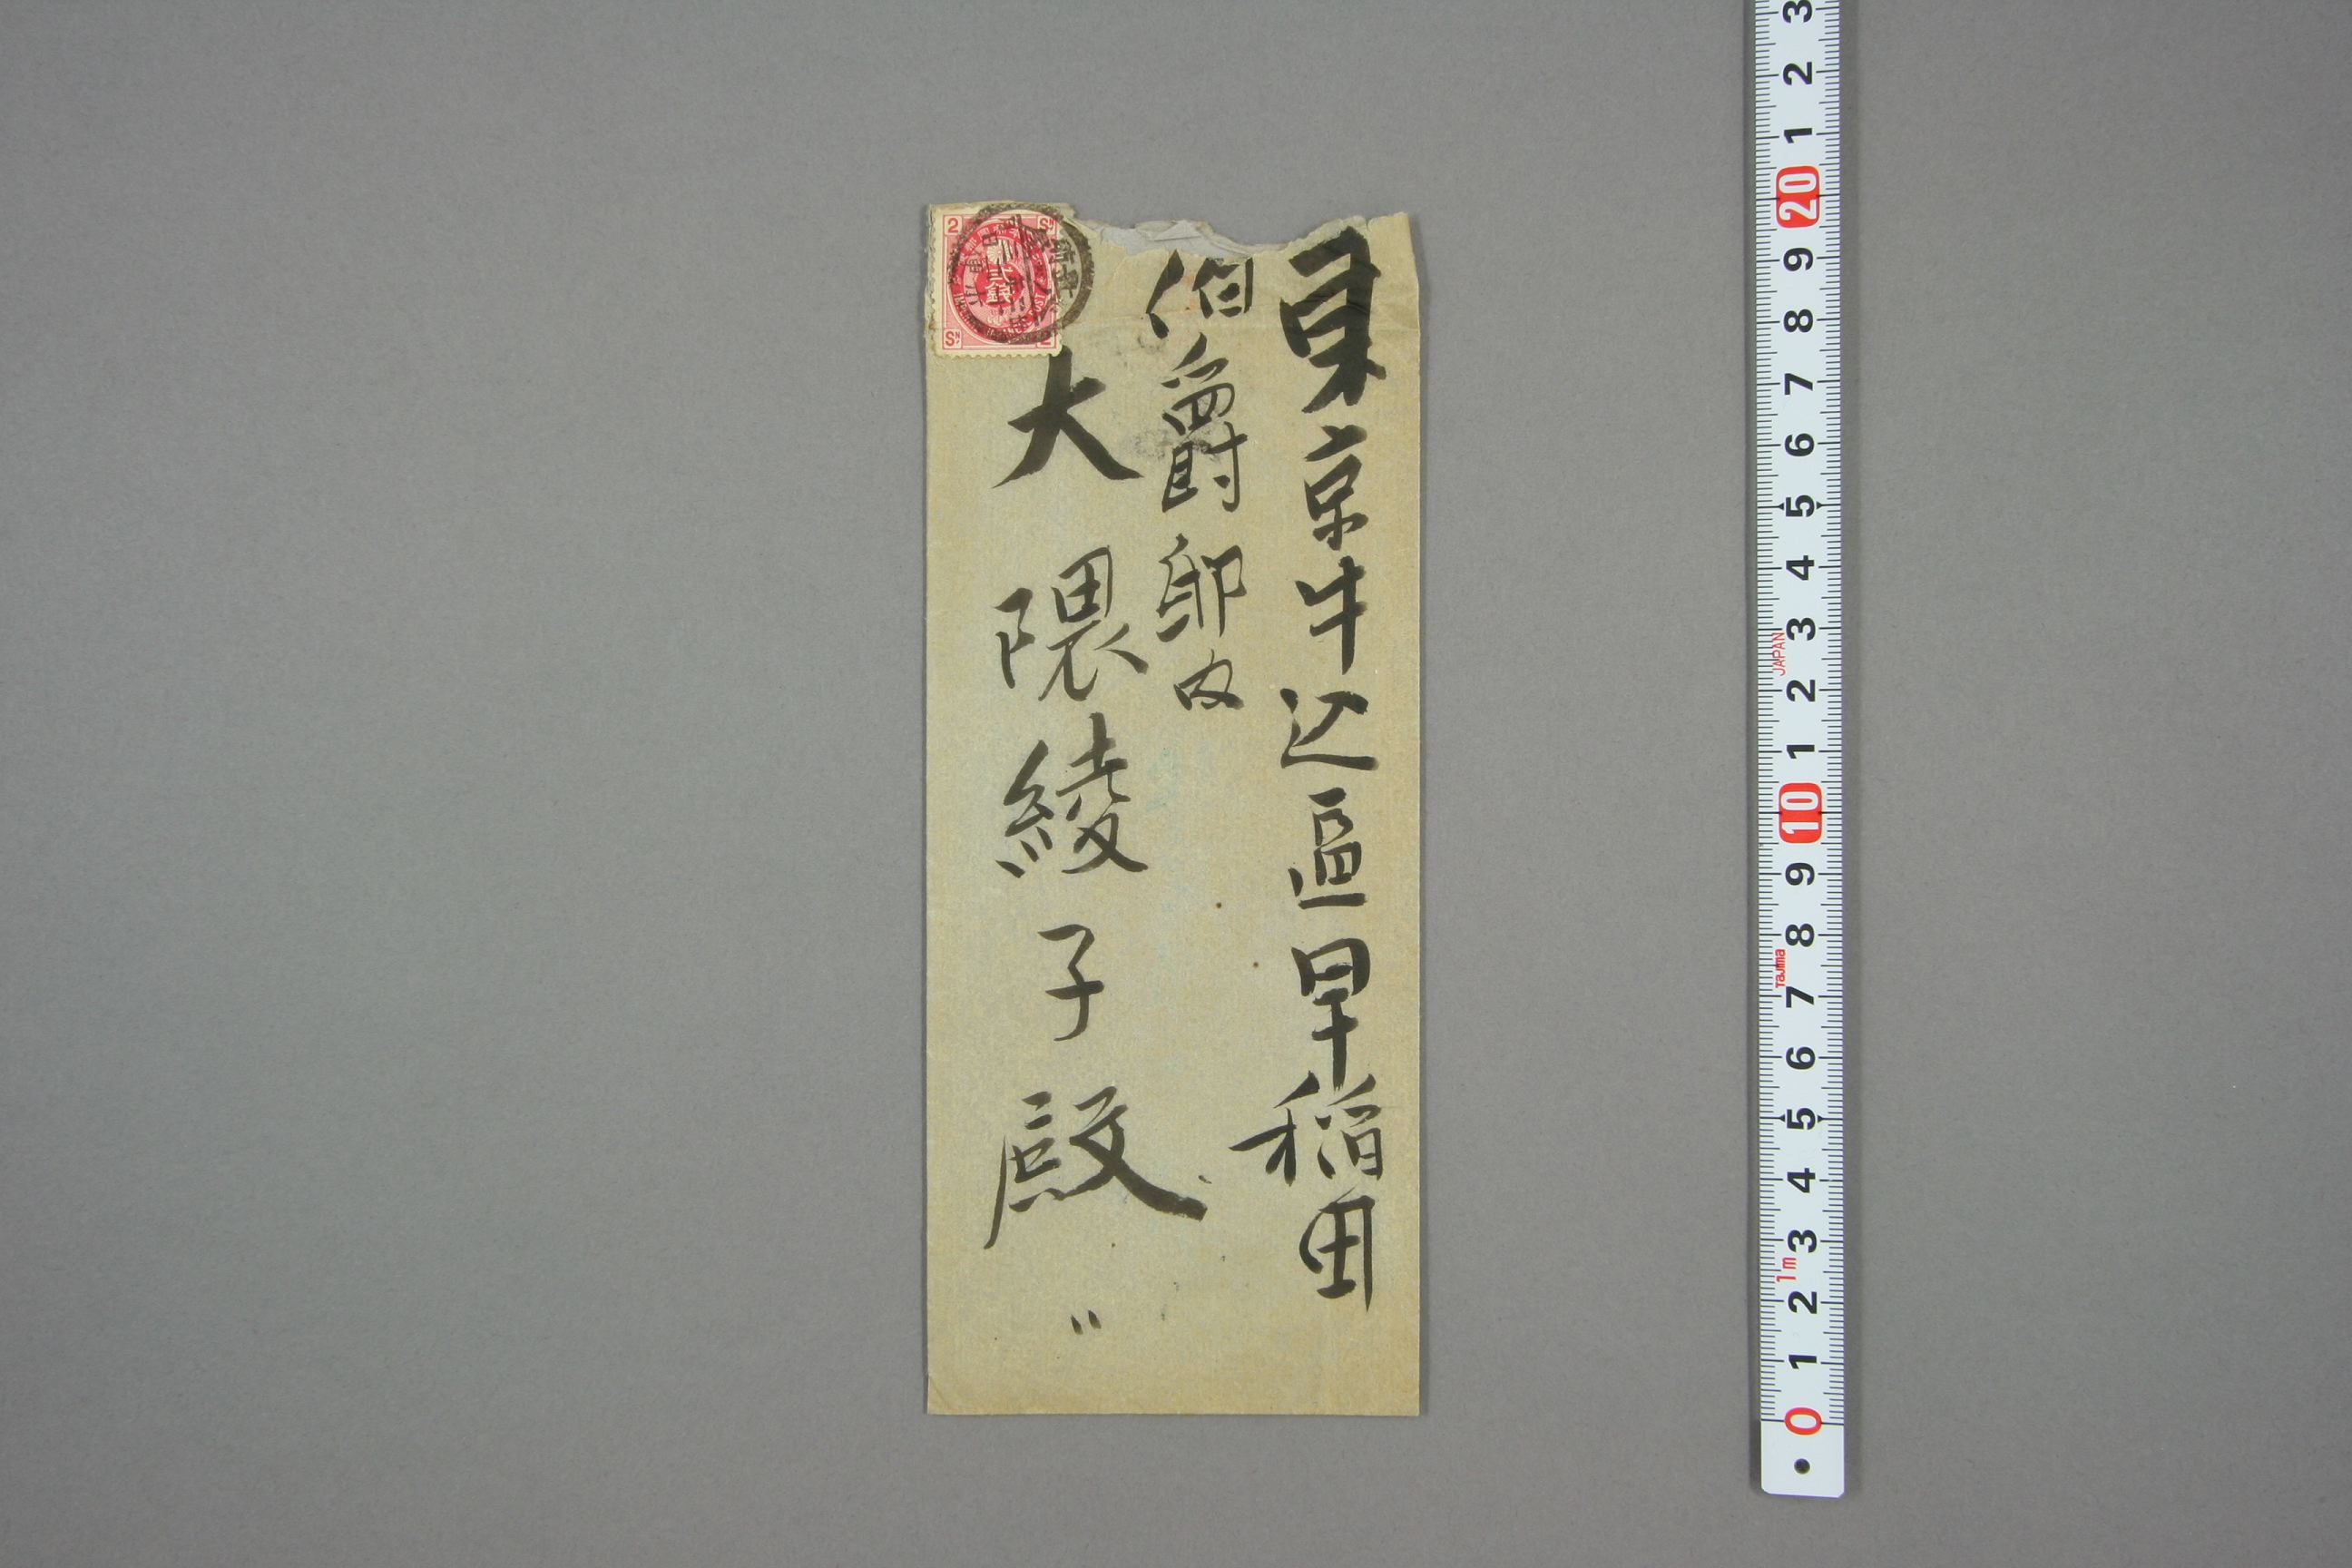 東京牛込區早稲田
伯爵邸内
大隈綾子殿
2 SN
貳銭
SN 2
3
2
1
20
9
8
7
6
5
4
3
JAPAN
2
1
10
9
8
Tajima
7
6
5
4
3
1m
2
1
0